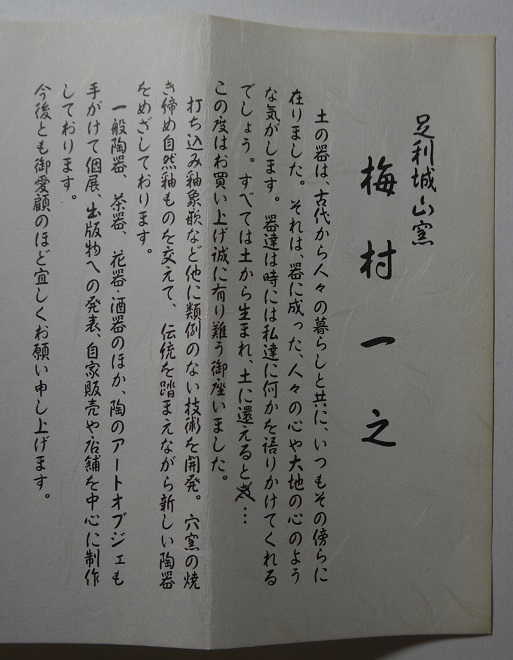 足利城山窯
梅村一之
土の器は、古代から人々の暮らしと共に、いつもその傍らに
在りました。それは、器に成った、人々の心や大地の心のよう
な気がします。器達は時には私達に何かを語りかけてくれる
でしょう。すべては土から生まれ、土に還えると…
この度はお買い上げ誠に有り難う御座いました。
打ち込み釉象嵌など他に類例のない技術を開発。穴窯の焼
き締め自然釉ものを交えて、伝統を踏まえながら新しい陶器
をめざしております。
一般陶器、茶器、花器・酒器のほか、陶のアートオブジェも
手がけて個展、出版物への発表、自家販売や店舗を中心に制作
しております。
今後とも御愛顧のほど宜しくお願い申し上げます。